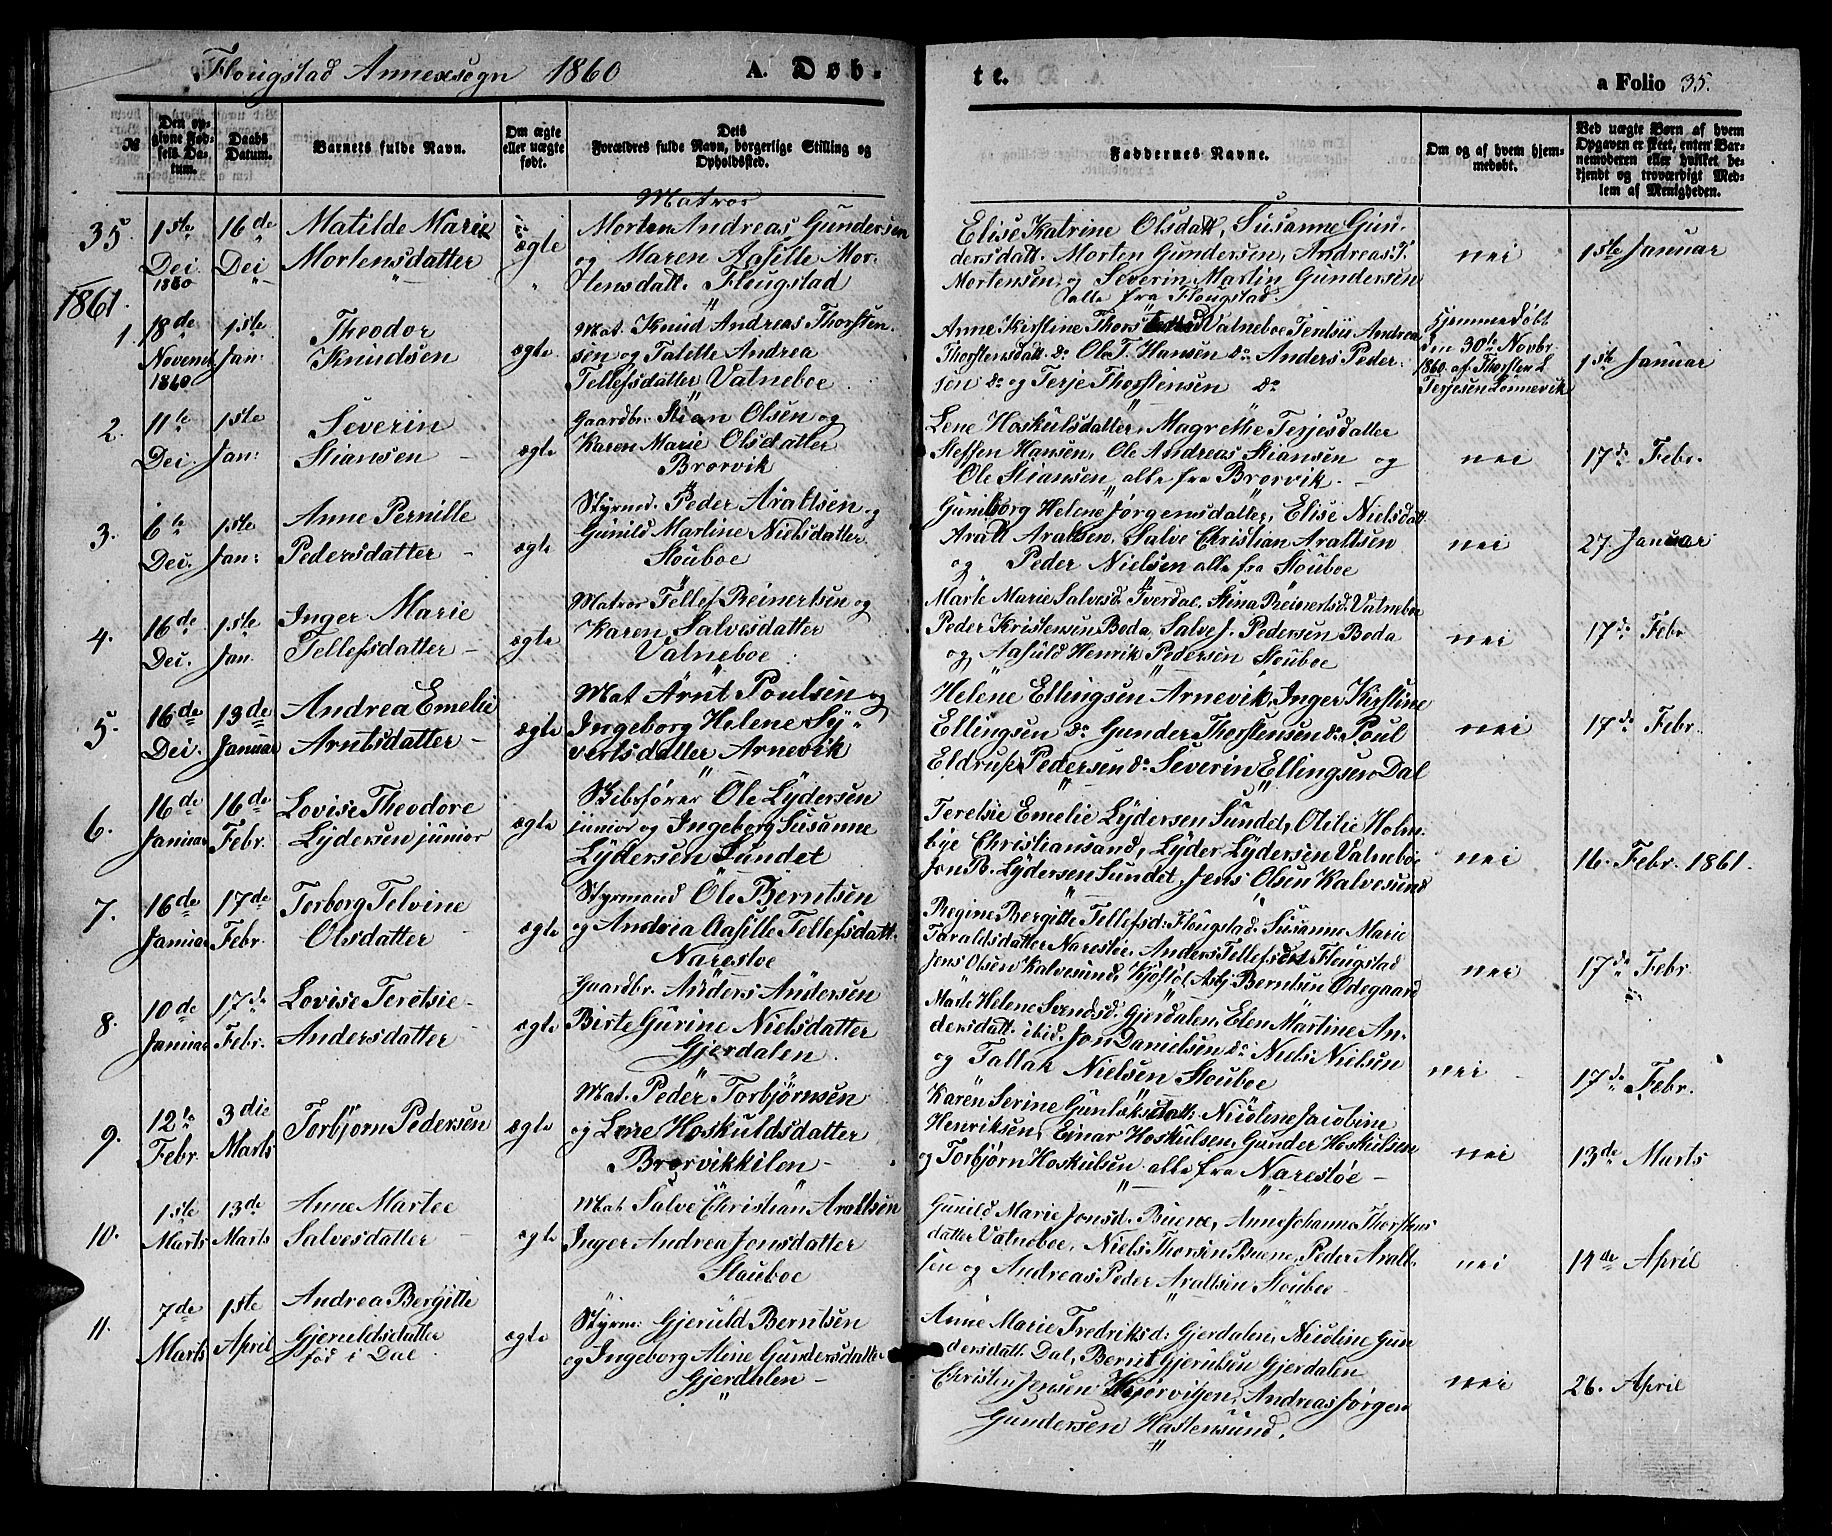 Flougstad Annexsogn 1860 A. Døb-
te. a Folio 35.
№
Den op-
givne Fød-
sels Da-
tum.
Daabs
Datum.
Barnets fulde Navn.
Om ægte
eller uægte
født.
Dets
Forældres fulde Navn, borgerlige Stilling og
Opholdsted.
Faddernes Navne.
Om og af hvem hjem-
medøbt.
Ved uægte Børn af hvem
Opgaven er skeet, enten Bar-
nemoderen eller hvilket be-
kjendt og troværdigt Med-
lem af Menigheden.
35.
1ste
Dei
1860
16de
Dei
Matilde Marie
Mortensdatter
ægte
Matros
Morten Andreas Gundersen
og Maren Aasille Mor-
tensdatt. Flougstad
Elise Katrine Olsdatt, Susanne Gun-
dersdatt. Morten Gundersen, Andreas
Mortensen og Severin Martin Gundersen
alle fra Flougstad
nei
1ste Januar
1861.
1
18de
Novemb
1860
1ste
Jan:
Theodor
Knudsen
ægte
Mat. Knud Andreas Thorsten-
sen og Talette Andrea
Tellefsdatter Vatneboe
Anne Kirstine Thors Vatneboe Terelsie Andrea
Thorstensdatt do Ole T. Hansen do Anders Peder-
sen do og Terje Thorstensen do
Hjemmedøbt
den 30te Novbr.
1860 af Thorsten
Terjesen Lønnevik
1ste Januar
2.
11te
Dei.
1ste
Jan:
Severin
Stiansen
ægte
Gaardbr. Stian Olsen og
Karen Marie Olsdatter
Brorvik
Lene Hoskulsdatter, Magrethe Terjesdatter
Steffen Hansen, Ole Andreas Stiansen og
Ole Stiansen, alle fra Brorvik.
nei
17de Febr.
3.
6te
Dei.
1ste
Jan:
Anne Pernille
Pedersdatter
ægte
Styrmd. Peder Araltsen og
Gunild Martine Nielsdatter
Stouboe
Guniborg Helene Jørgensdatter, Elise Nielsdatt.
Aralt Araltsen, Salve Christian Araltsen
og Peder Nielsen alle fra Stouboe
nei
27. Januar
4.
16de
Dei.
1ste
Jan.
Inger Marie
Tellefsdatter
ægte
Matros Tellef Reinertsen og
Karen Salvesdatter
Vatneboe
Marte Marie Salvesd. Tverdal, Stina Reinertsd. Vatneboe
Peder Kristensen Boda, Salve J. Pedersen Boda
og Aasuld Henrik Pedersen Stouboe
nei
17de Febr
5.
16de
Dei.
13de
Januar
Andrea Emelie
Arntsdatter
ægte
Mat Arnt Poulsen og
Ingeborg Helene Sy-
vertsdatter Arnevik
Helene Ellingsen Arnevik, Inger Kirstine
Ellingsen do Gunder Thorstensen do Poul
Eldrup Pedersen do Severin Ellingsen Dal
nei
17de Febr.
6.
16de
Januar
16de
Febr.
Lovise Theodore
Lydersen junior
ægte
Skibsfører Ole Lydersen
junior og Ingeborg Susanne
Lydersen Sundet
Terelsie Emelie Lydersen Sundet, Otilie Holm-
bye Christiansand, Lyder Lydersen Vatneboe
Jon B. Lydersen Sundet, Jens Olsen Kalvesund
nei
16. Febr. 1861.
7.
16de
Januar
17de
Febr.
Torborg Telvine
Olsdatter
ægte
Styrmand Ole Berntsen
og Andrea Aasille Tellefsdatt.
Narestoe
Regine Bergitte Tellefsd. Flougstad. Susanne Marie
Taraldsdatter Narestøe, Anders Tellefsen Flougstad
Jens Olsen Kalvesund, Kjøstol Asbj Berntsen Ødegaard
nei
17de Febr.
8.
10de
Januar
17de
Febr.
Lovise Teretsie
Andersdatter
ægte
Gaardbr. Anders Andersen
Birte Gurine Nielsdatter
Gjerdalen
Marte Helene Svendsd. Gjerdalen, Elen Martine An-
dersdatt. ibid. Jon Danielsen do Niels Nielsen
og Tallak Nielsen Stouboe
nei
17de Febr.
9.
12te
Febr.
3die
Marts
Torbjørn Pedersen
ægte
Mat. Peder Torbjørnsen
og Lene Hoskuldsdatter
Brorvikkilen
Karen Serine Gunleksdatt. Nicolene Jacobine
Henriksen, Einar Hoskulsen, Gunder Hoskulsen
og Torbjørn Hoskulsen alle fra Narestøe
nei
13de Marts
10.
1ste
Marts
13de
Marts
Anne Martee
Salvesdatter
ægte
Mat Salve Christian Araltsen
Inger Andrea Jonsdatter
Stouboe
Gunild Marie Jonsd. Buene, Anne Johanne Thorstens
datter Vatneboe, Niels Thorsen Buene, Peder Aralt-
sen og Andreas Peder Araltsen Stouboe
nei
14de April
11.
7de
Marts
1ste
April
Andrea Bergitte
Gjeruldsdatter
fød i Dal
ægte
Styrm: Gjeruld Berntsen
og Ingeborg Aline Gundersdatter
Gjerdalen
Anne Marie Fredriksd. Gjerdalen, Nicoline Gun
dersdatt. Dal, Bernt Gjeruldsen Gjerdalen
Christen Jensen, Andreas Jørgen
Gundersen Hastensund.
nei
26. April